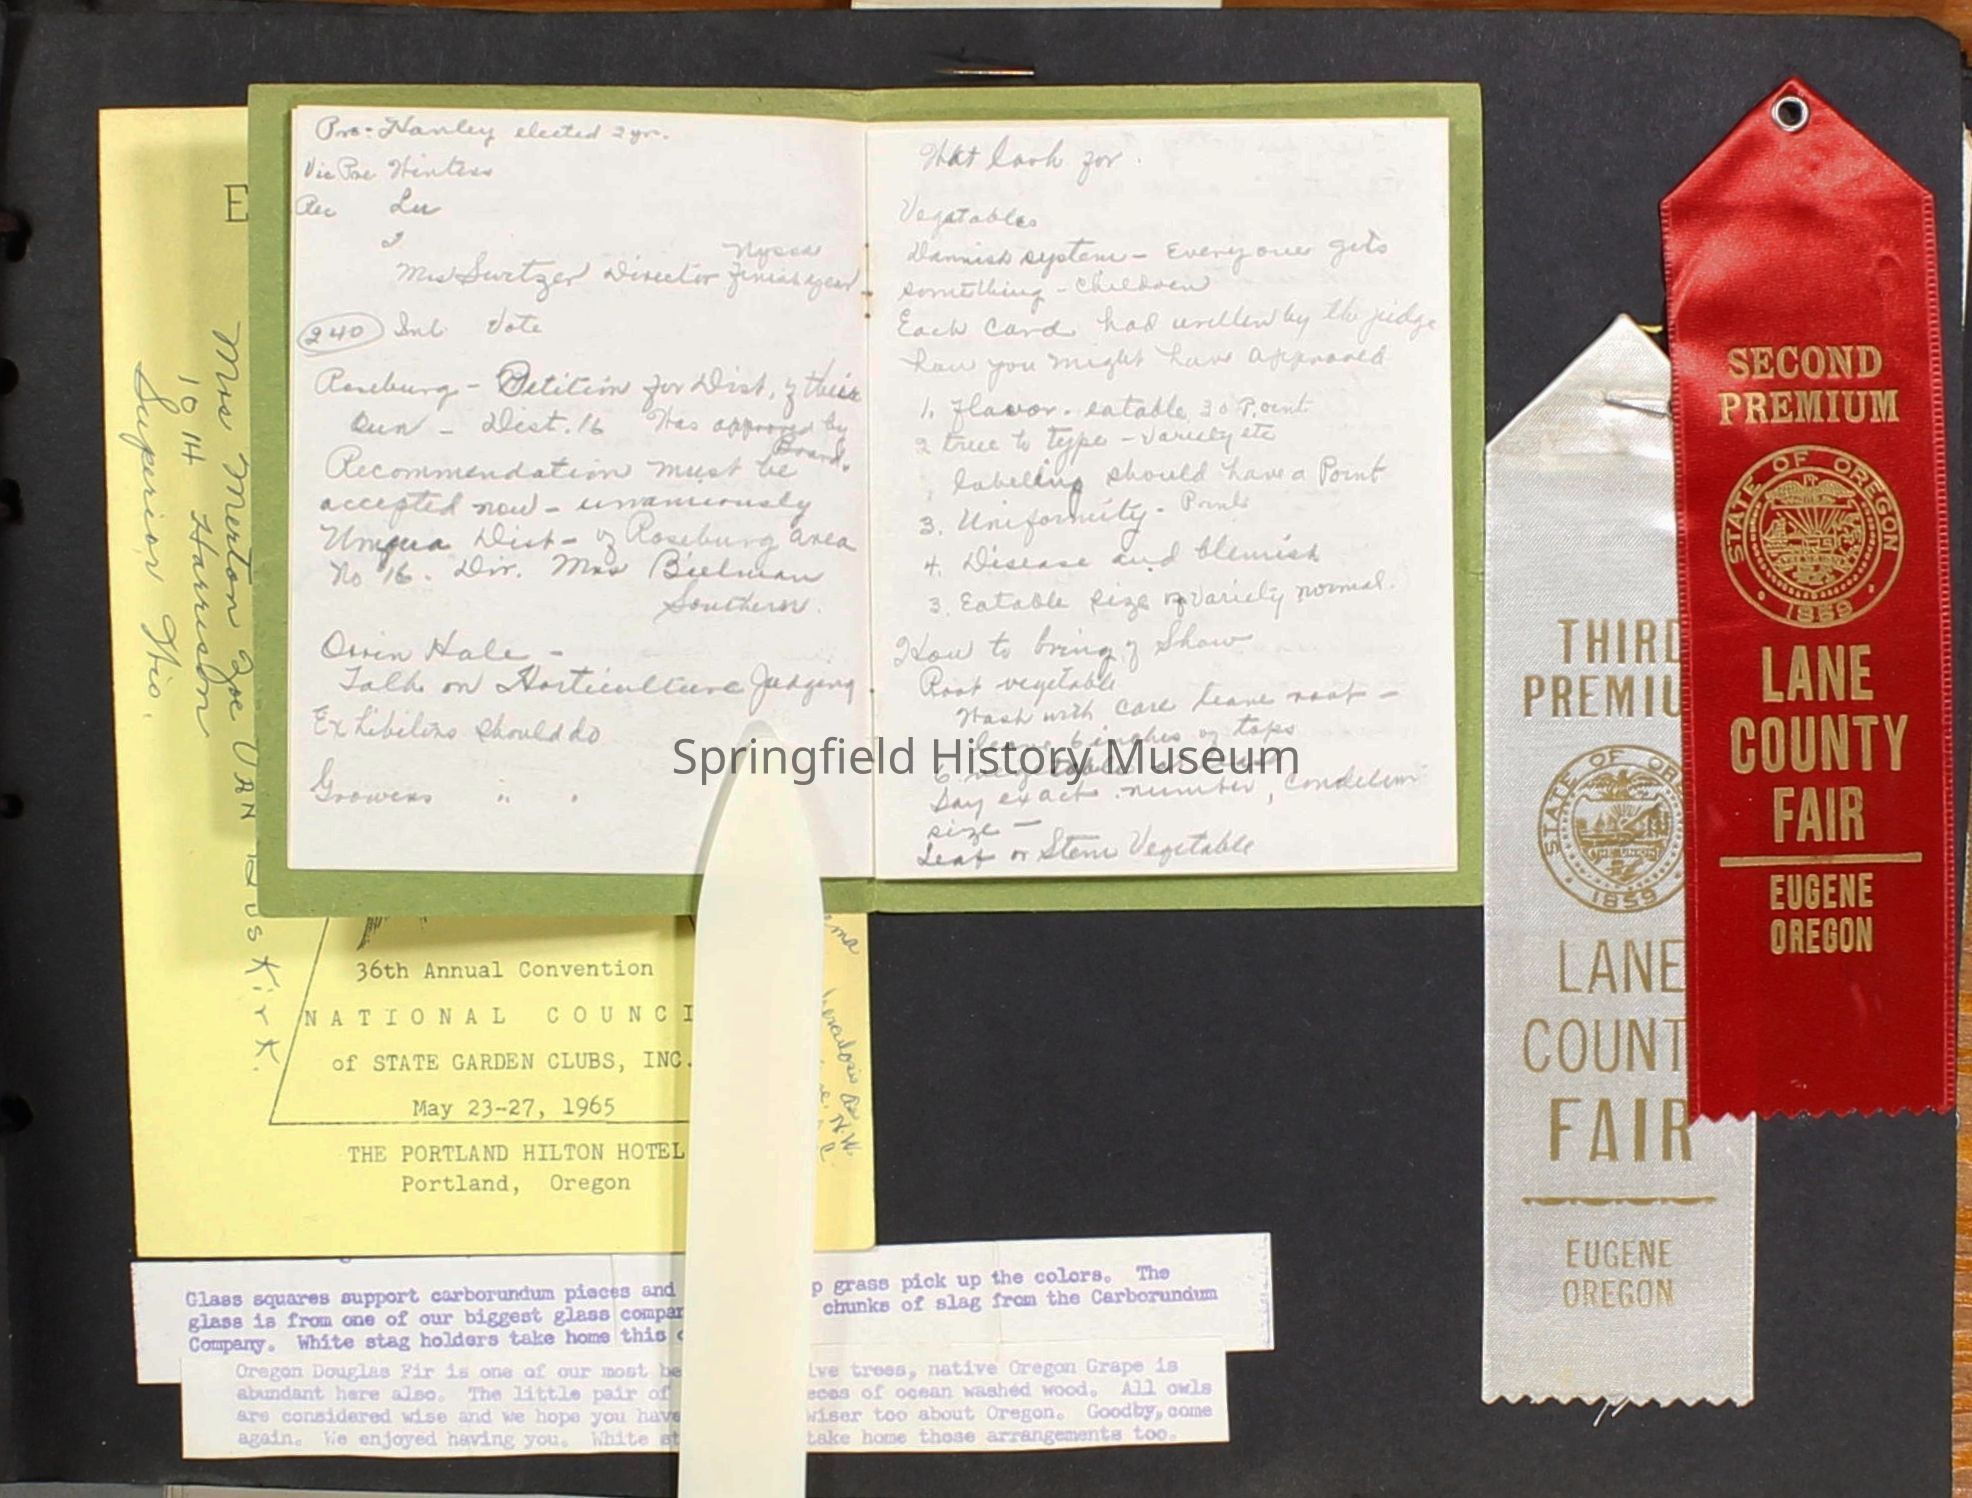 Pre - Hanley elected 2 yr.
Vic Pre Winters
Rec Lu
2
Nyssa
Mrs Switzer Director finish year
240 Inl Vote
Roseburg - Petition for Dist. of their
own - Dist. 16 Was approved by
Board.
Recommendation must be
accepted now - unamiously
Umqua Dist - of Roseburg area
No 16. Dir. Mrs Bielman
Southern.
Orrin Hale -
Talk on Horticulture Judging
Exhibitors should do
Growers " "
What look for.
Vegatables
Dannish system - Everyone gets
something - children
Each card had written by the judge
how you might have approved
1. flavor. eatable 30 Point
2 true to type - variety etc
labeling should have a Point
3. Uniformity - Points
4. Disease and blemish
3. Eatable size of variety normal.
How to bring of Show
Root vegetable
Wash with care leave root -
leave 6 inches of tops
6 vegetable
Say exact number, condition
size -
Leaf or Stem Vegetable
E
Mrs Merton Zoe VAN BUSKirK.
1014 Harrison
Superior Wis.
36th Annual Convention
NATIONAL COUNCI
of STATE GARDEN CLUBS, INC.
May 23-27, 1965
THE PORTLAND HILTON HOTEL
Portland, Oregon
N.W.
Glass squares support carborundum pieces and p grass pick up the colors. The
glass is from one of our biggest glass compan chunks of slag from the Carborundum
Company. White stag holders take home this
Oregon Douglas Fir is one of our most be ive trees, native Oregon Grape is
abundant here also. The little pair of eces of ocean washed wood. All owls
are considered wise and we hope you have wiser too about Oregon. Goodby, come
again. We enjoyed having you. White st take home those arrangements too.
THIRD
PREMIU
STATE OF OR
1859
LANE
COUNT
FAIR
EUGENE
OREGON
SECOND
PREMIUM
STATE OF OREGON
1859
LANE
COUNTY
FAIR
EUGENE
OREGON
Springfield History Museum